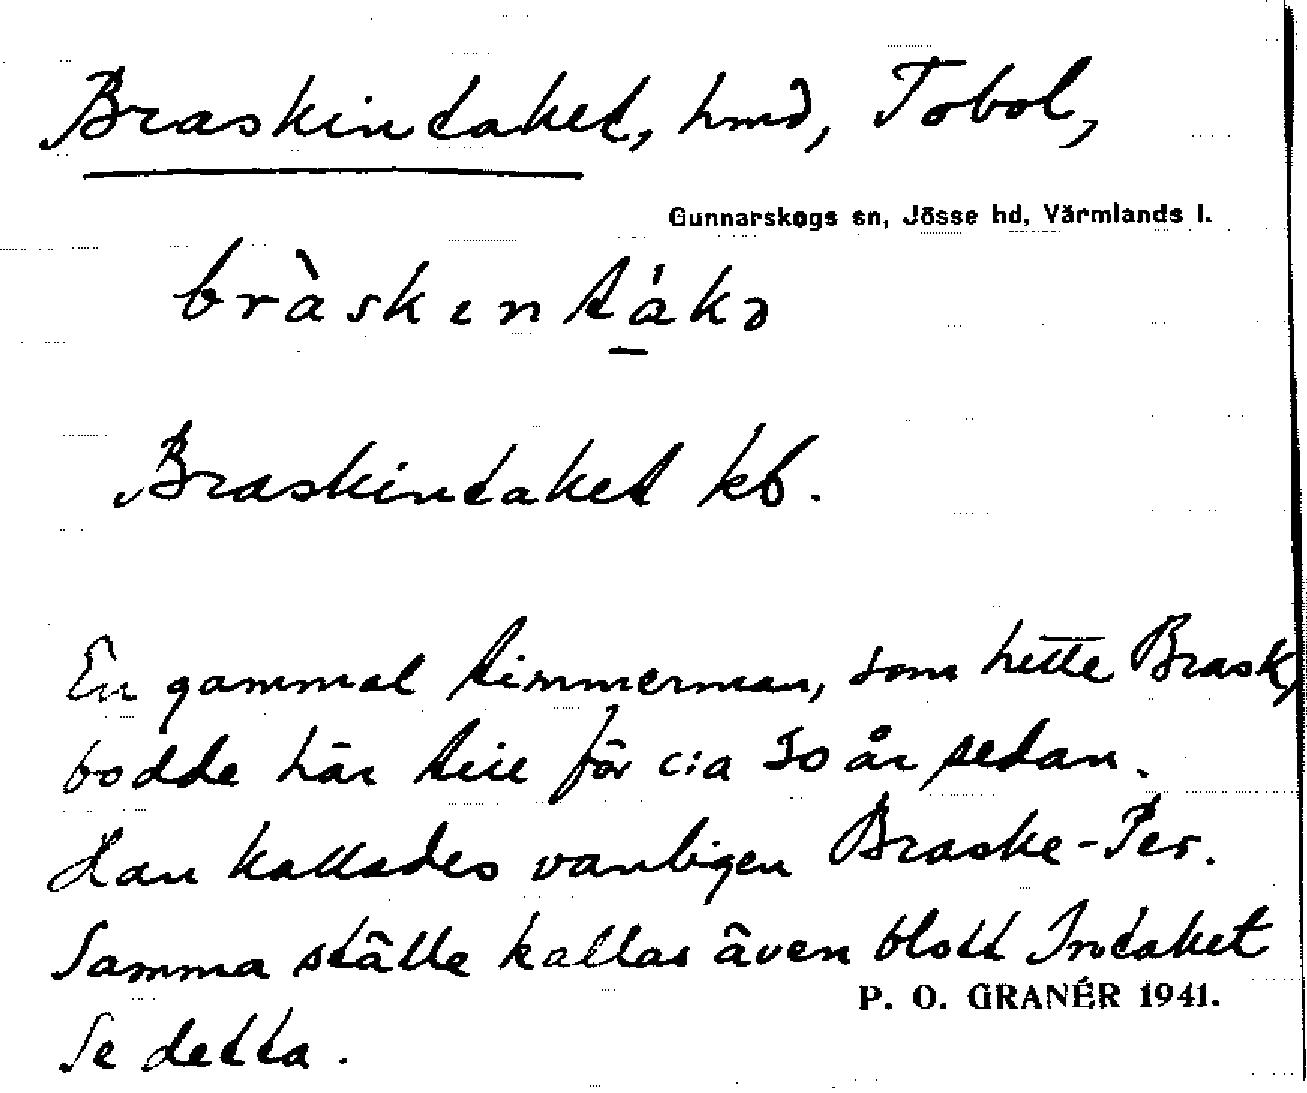 Braskintaket, hmd, Tobol,
Gunnarskogs sn, Jösse hd, Värmlands l.
bràskɩntákə
Braskintaket kb.
En gammal timmerman, som hette Brask,
bodde här till för c:a 50 år sedan.
Han kallades vanligen Braske-Per.
Samma ställe kallas även blott Intaket
P. O. GRANÉR 1941.
Se detta.